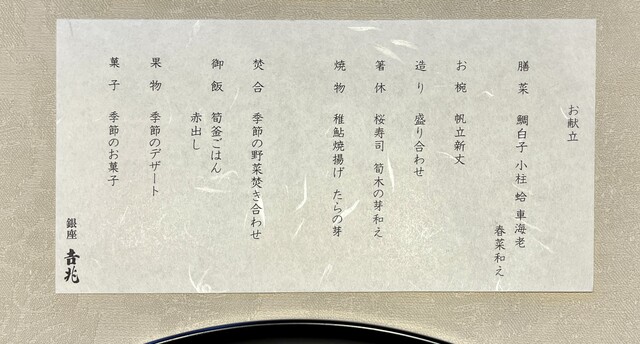 お献立
膳菜 鯛白子 小柱 蛤 車海老
春菜和え
お椀 帆立新丈
造り 盛り合わせ
箸休 桜寿司 筍木の芽和え
焼物 稚鮎焼揚げ たらの芽
焚合 季節の野菜焚き合わせ
御飯 筍釜ごはん
赤出し
果物 季節のデザート
菓子 季節のお菓子
銀座 𠮷兆